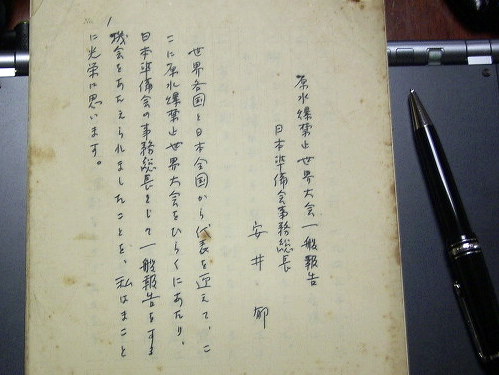 原水爆禁止世界大会一般報告
日本準備会事務総長
安井 郁
世界各国と日本全国から代表を迎えて、こ
こに原水爆禁止世界大会をひらくにあたり、
日本準備会の事務総長として一般報告をする
機会をあたえられましたことを、私はまこと
に光栄に思います。